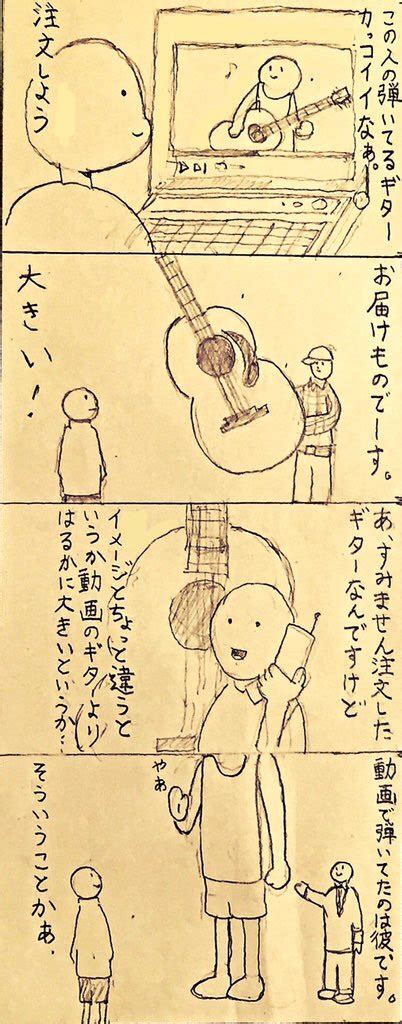 この人の弾いてるギター
カッコイイなぁ。
注文しよう
お届けものでーす。
大きい!
あ、すみません注文した
ギターなんですけど
イメージとちょっと違うと
いうか動画のギターより
はるかに大きいというか…
動画で弾いてたのは彼です。
やあ
そういうことかぁ.